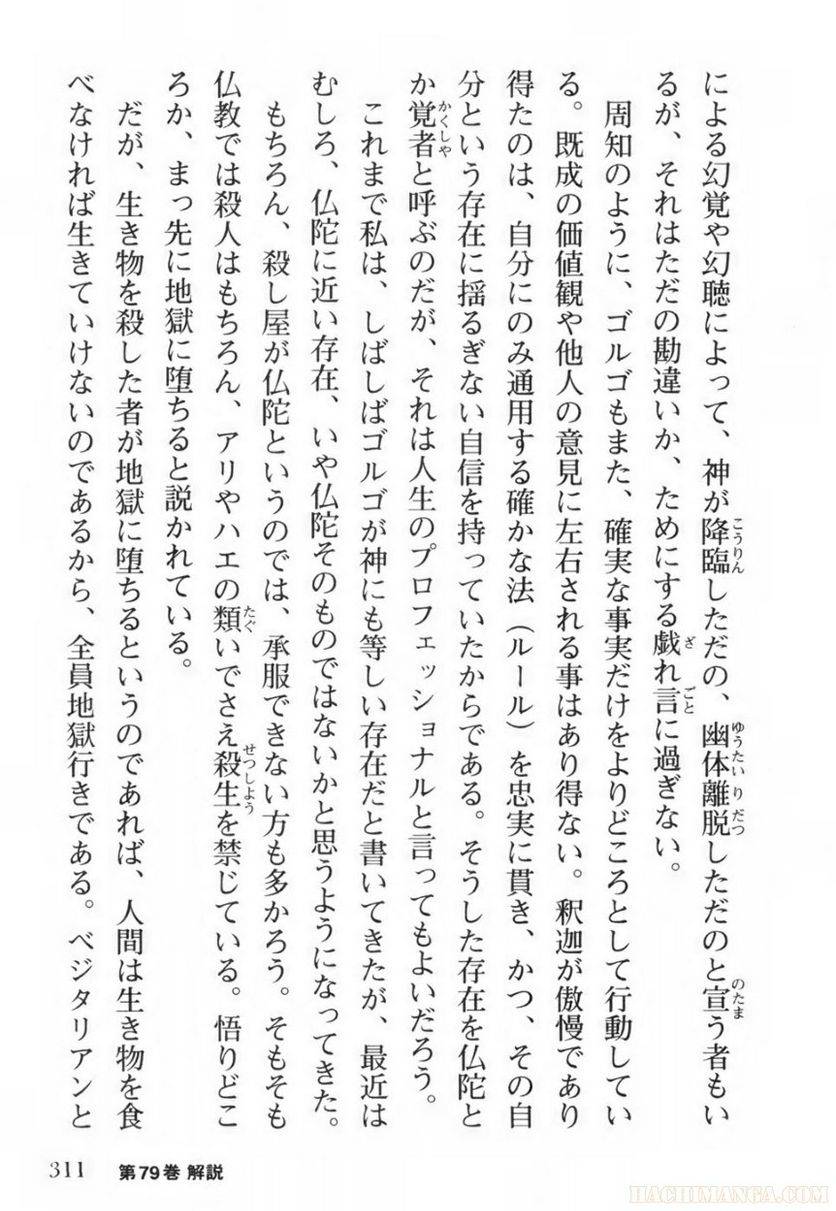 による幻覚や幻聴によって、神が降臨しただの、幽体離脱しただのと宣う者もい
るが、それはただの勘違いか、ためにする戯れ言に過ぎない。
周知のように、ゴルゴもまた、確実な事実だけをよりどころとして行動してい
る。既成の価値観や他人の意見に左右される事はあり得ない。釈迦が傲慢であり
得たのは、自分にのみ通用する確かな法（ルール）を忠実に貫き、かつ、その自
分という存在に揺るぎない自信を持っていたからである。そうした存在を仏陀と
か覚者と呼ぶのだが、それは人生のプロフェッショナルと言ってもよいだろう。
これまで私は、しばしばゴルゴが神にも等しい存在だと書いてきたが、最近は
むしろ、仏陀に近い存在、いや仏陀そのものではないかと思うようになってきた。
もちろん、殺し屋が仏陀というのでは、承服できない方も多かろう。そもそも
仏教では殺人はもちろん、アリやハエの類いでさえ殺生を禁じている。悟りどこ
ろか、まっ先に地獄に堕ちると説かれている。
だが、生き物を殺した者が地獄に堕ちるというのであれば、人間は生き物を食
べなければ生きていけないのであるから、全員地獄行きである。ベジタリアンと
311 第79巻 解説
HACHIMANGA.COM